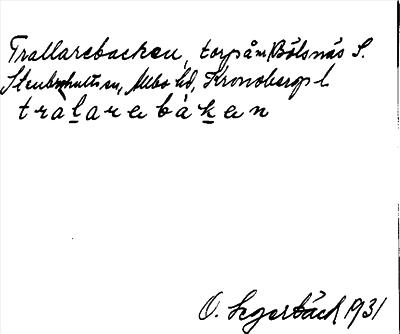 Trallarebacken, torp å m/Bölsnäs S.
Stenbrohults sn, Allbo hd, Kronobergs l
trálarabákan
O. Segerbäck 1931